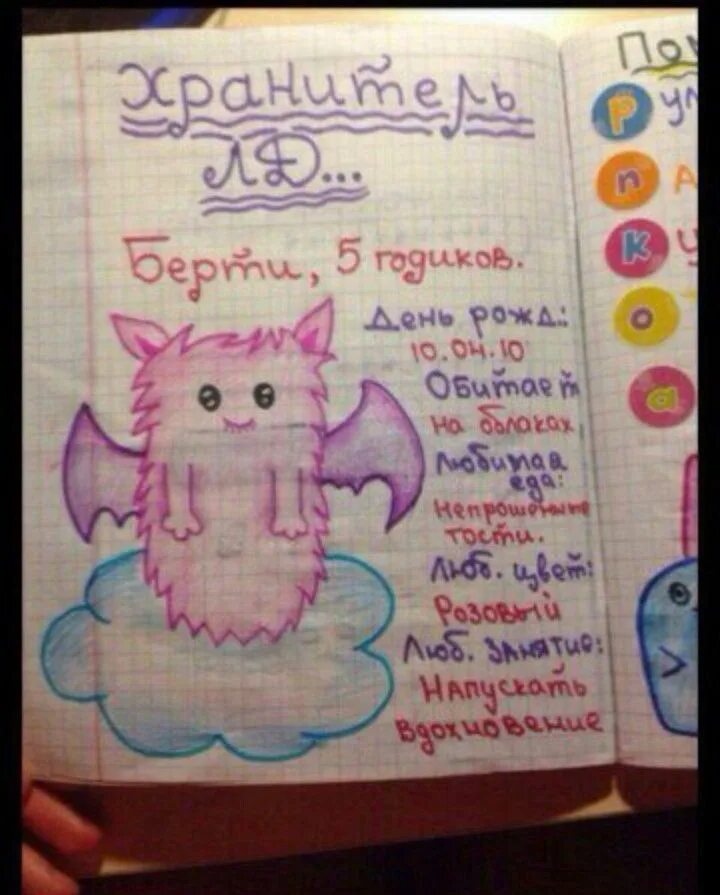 Хранитель
ЛД...
Берти, 5 годиков.
День рожд.:
10.04.10
Обитает
на облаках
Любимая
еда:
Непрошенные
тости.
Люб. цвет:
Розовый
Люб. занятие:
Напускать
вдохновение
По
Р у
п А
к у
о
а